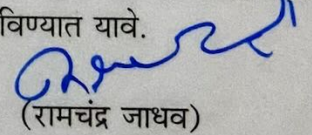 विण्यात यावे.
(रामचंद्र जाधव)